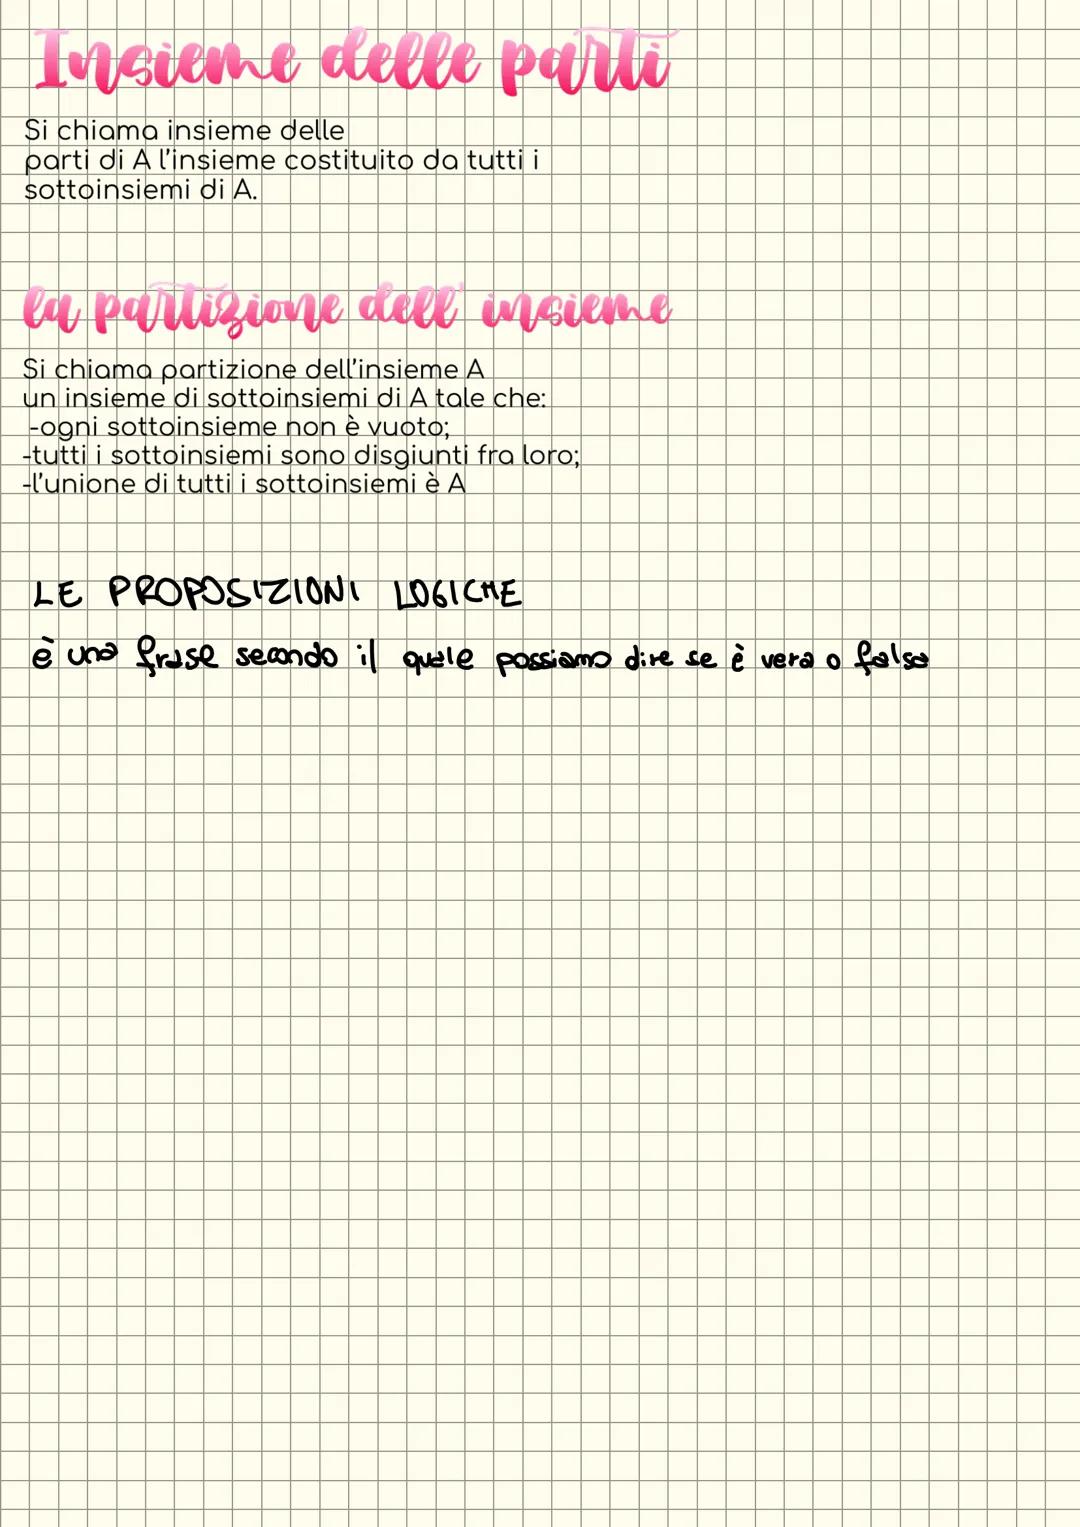 Insieme delle parti
Si chiama insieme delle
parti di A l'insieme costituito da tutti i
sottoinsiemi di A.
la partizione dell' insieme
Si chiama partizione dell'insieme A
un insieme di sottoinsiemi di A tale che:
-ogni sottoinsieme non è vuoto;
-tutti i sottoinsiemi sono disgiunti fra loro;
-l'unione di tutti i sottoinsiemi è A
LE PROPOSIZIONI LOGICHE
è una frase secondo il quale possiamo dire se è vera o falsa